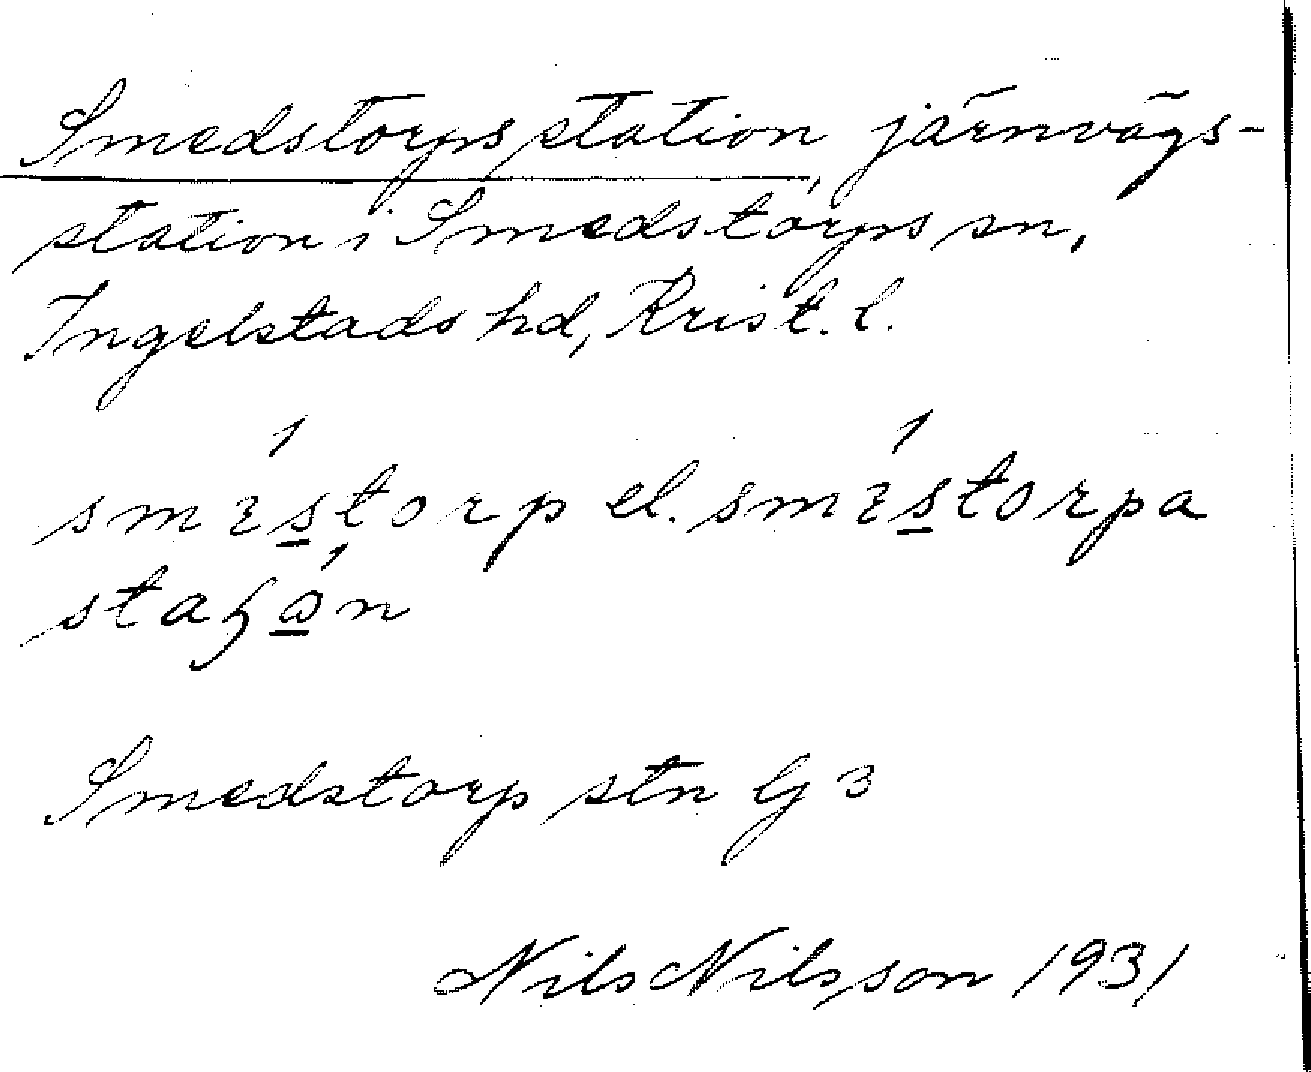 Smedstorps station, järnvägs-
station i Smedstorps sn,
Ingelstads hd, Krist. l.
smɛstorp el. smɛstorpa
staɧωn
Smedstorp stn Gj 3
Nils Nilsson 1931